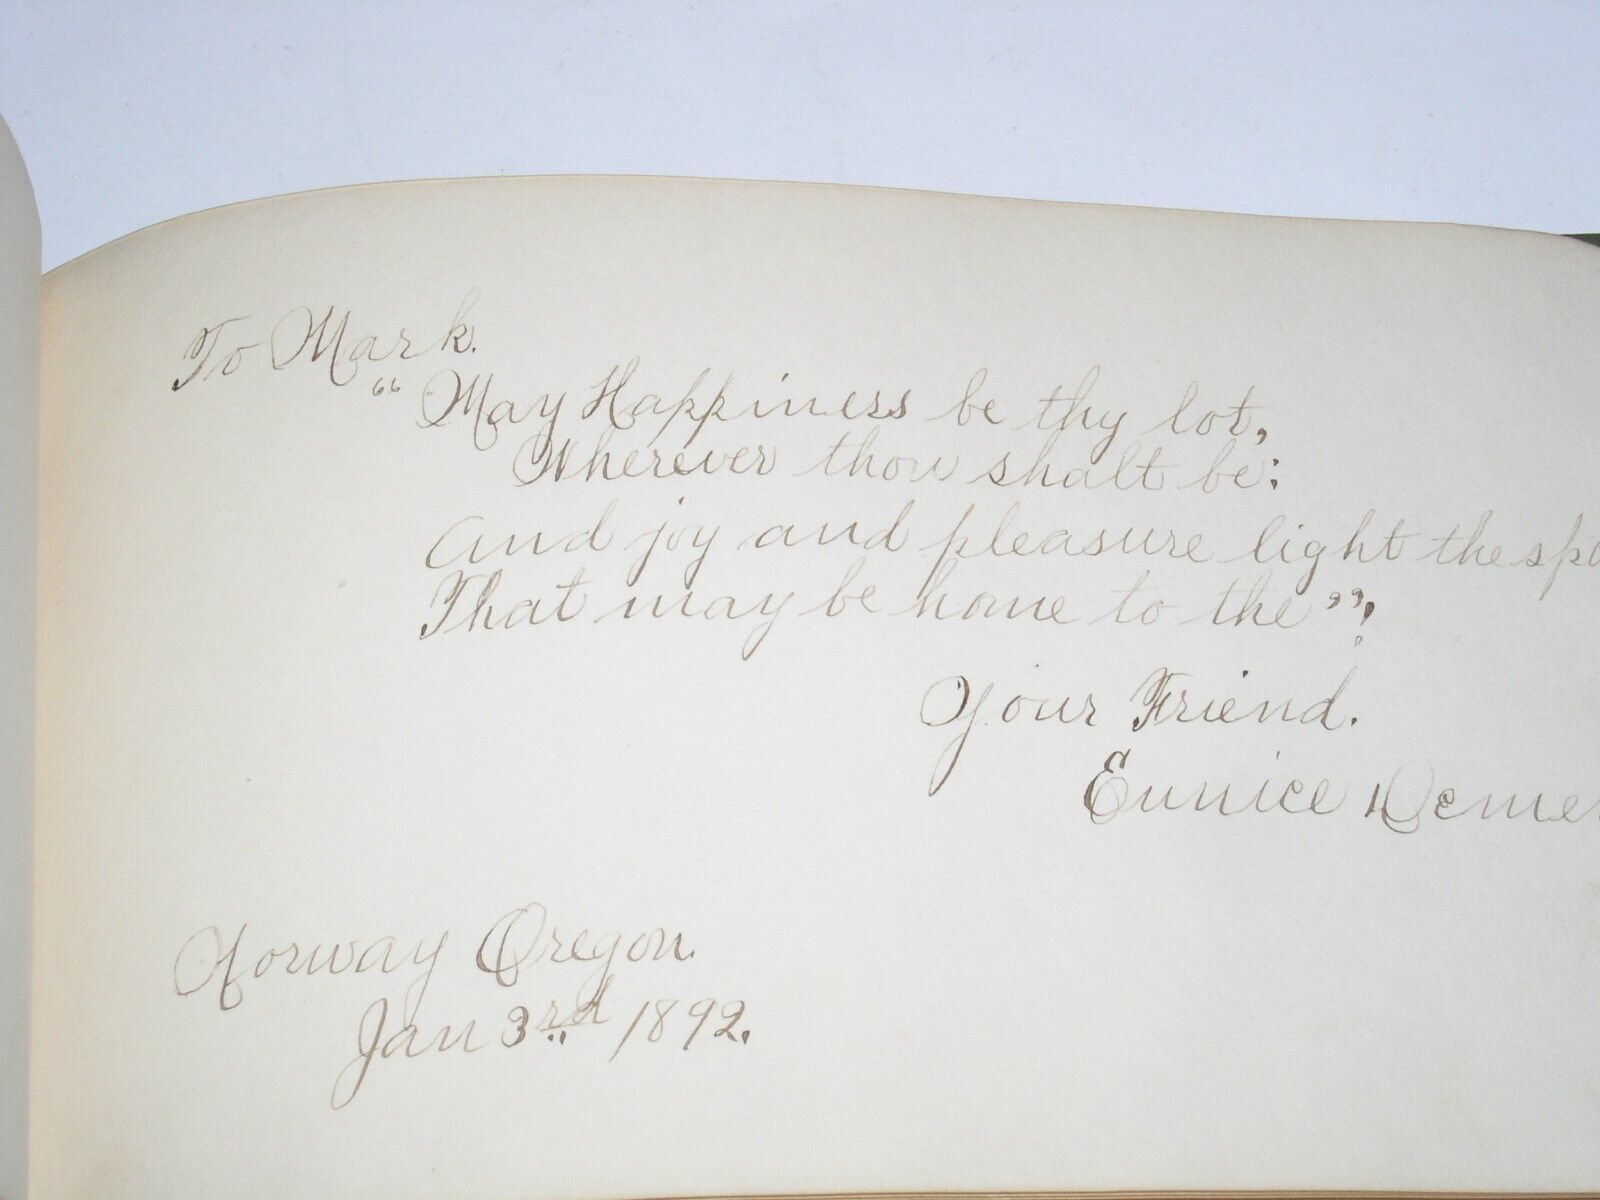 To Mark.
“ May Happiness be thy lot,
Wherever thou shalt be:
And joy and pleasure light the spo
That may be home to the ”!
Your Friend.
Eunice Demer
Norway Oregon.
Jan 3rd 1892.